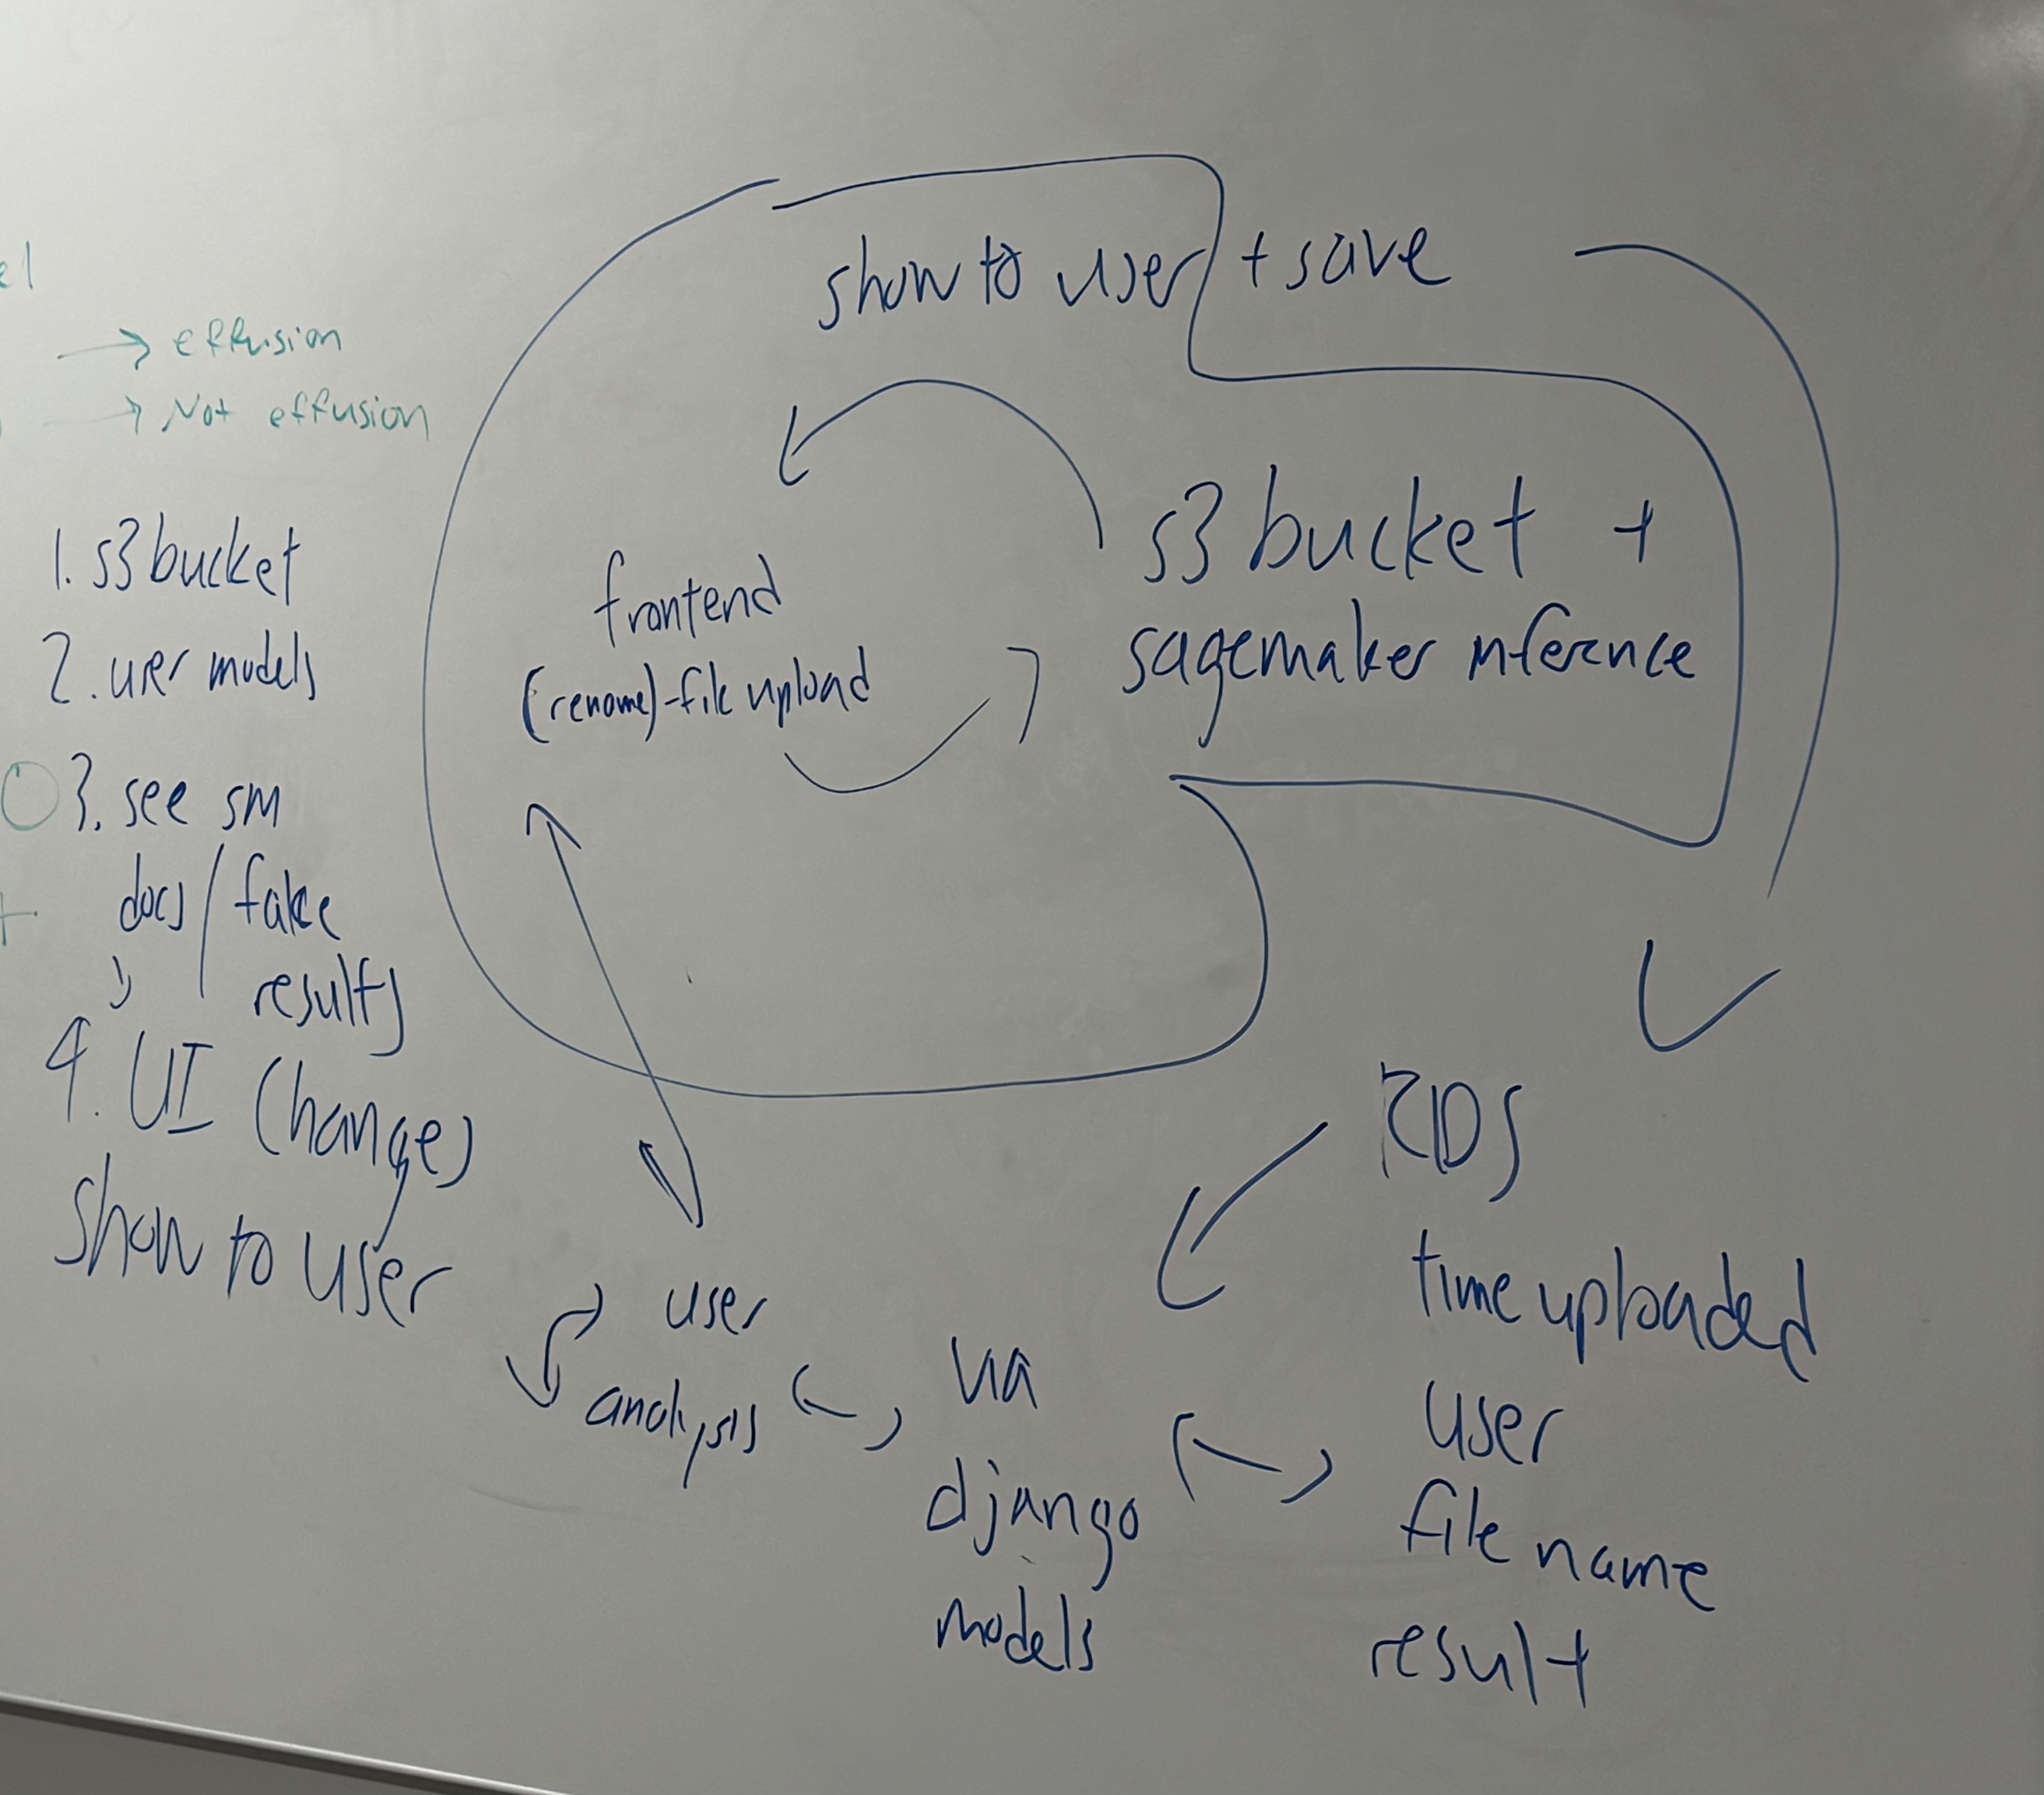 el
→ effusion
→ Not effusion
1. s3 bucket
2. user models
3. see sm
docs / fake
results
4. UI changes
show to user
show to user + save
frontend
(rename)-file upload
s3 bucket +
sagemaker inference
RDS
time uploaded
user
file name
result
via
django
models
user
analysis